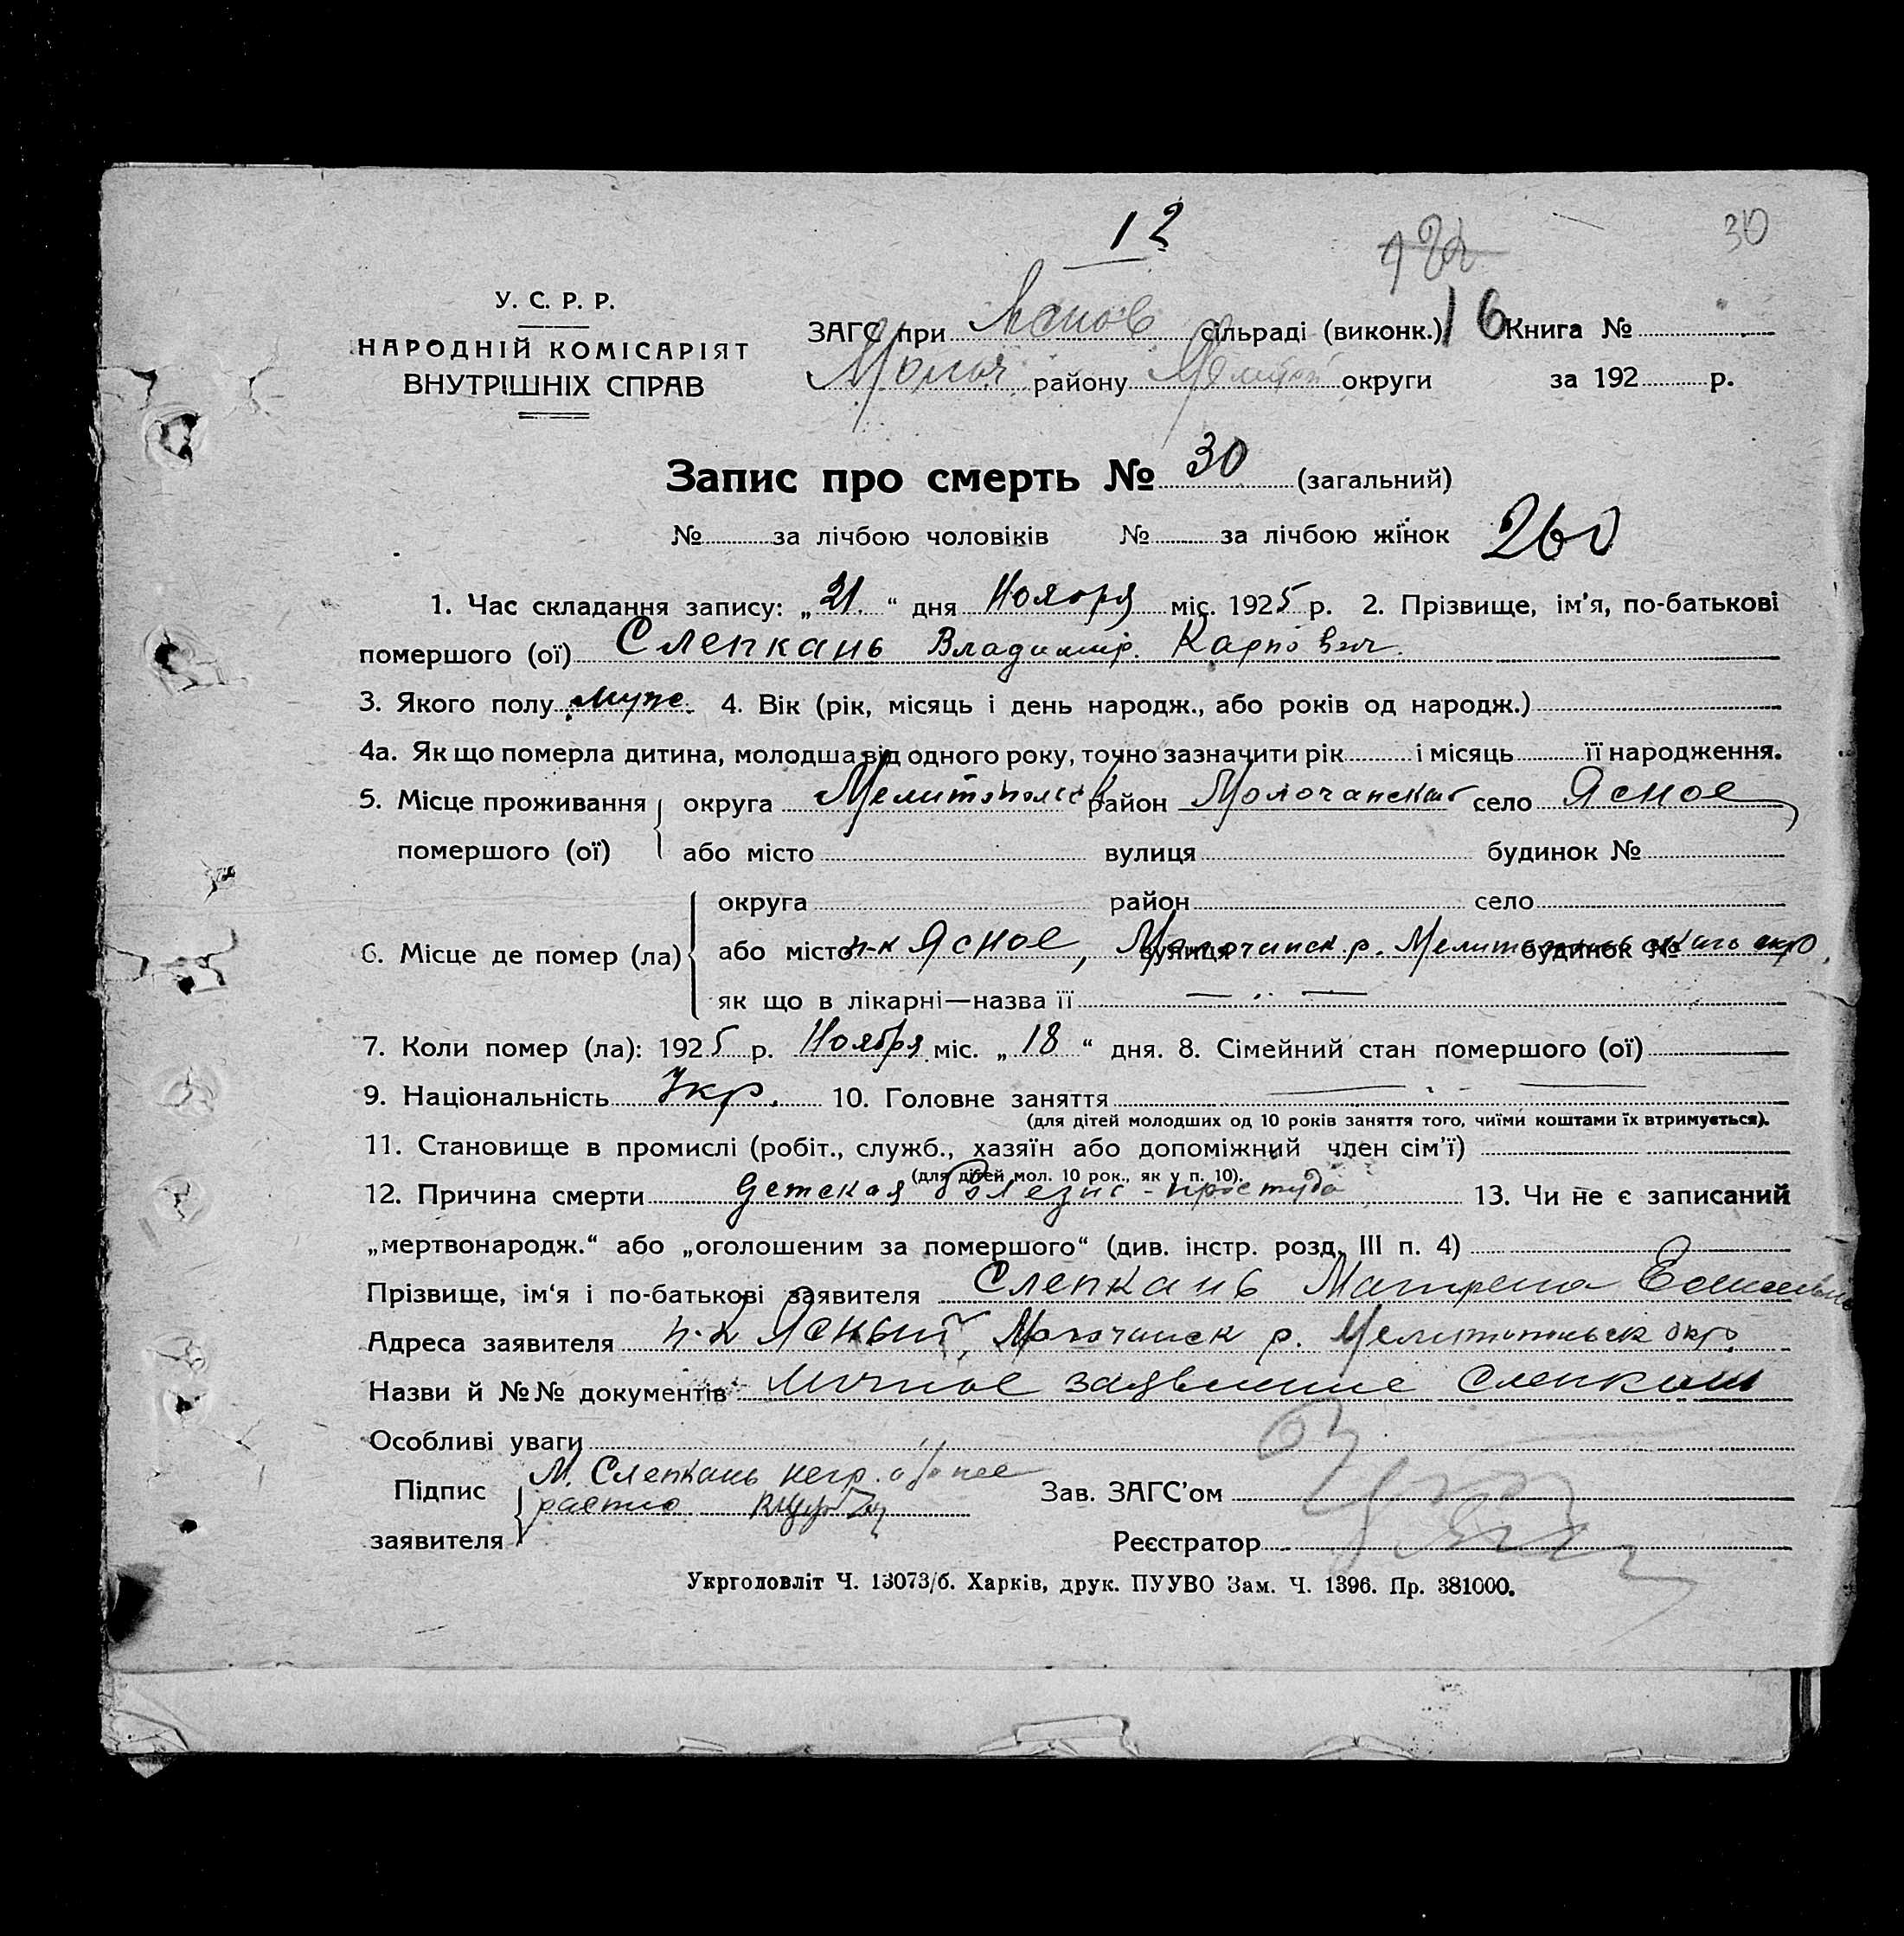 12
122
30
У. С. Р. Р.
НАРОДНІЙ КОМІСАРІЯТ
ВНУТРІШНІХ СПРАВ
ЗАГС при сільраді (виконк.) 16 Книга №
Молоч району Мелит округи за 192 р.
Запис про смерть № 30 (загальний)
№ за лічбою чоловіків № за лічбою жінок 260
1. Час складання запису: „21“ дня Ноября міс. 1925 р. 2. Прізвище, ім’я, по-батькові
помершого (ої) Слепкань Владимир. Карпович.
3. Якого полу муж. 4. Вік (рік, місяць і день народж., або років од народж.)
4а. Як що померла дитина, молодша від одного року, точно зазначити рік і місяць її народження.
5. Місце проживання округа Мелитопольск район Молочанский село Ясное
помершого (ої) або місто вулиця будинок №
округа район село
6. Місце де помер (ла) або місто п-к Ясное, вулиця Молочанск. р. Мелитопольскаго будинок № окр,
як що в лікарні—назва її — .. —
7. Коли помер (ла): 1925 р. Ноября міс. „18“ дня. 8. Сімейний стан помершого (ої)
9. Національність Укр. 10. Головне заняття
(для дітей молодших од 10 років заняття того, чиїми коштами їх втримується).
11. Становище в промислі (робіт., служб., хазяїн або допоміжний член сім’ї)
(для дітей мол. 10 рок., як у п. 10).
12. Причина смерти Детская болезнь - простуда 13. Чи не є записаний
„мертвонародж.“ або „оголошеним за помершого“ (див. інстр. розд. III п. 4)
Прізвище, ім‘я і по-батькові заявителя Слепкань Матрена
Адреса заявителя п-к Ясный, Молочанск р. Мелитопольск окр.
Назви й №№ документів Личное заявление Слепкань
Особливі уваги
Підпис М. Слепкань негр. а за нее Зав. ЗАГС’ом
заявителя Реєстратор
Укрголовліт Ч. 13073/б. Харків, друк. ПУУВО Зам. Ч. 1396. Пр. 381000.